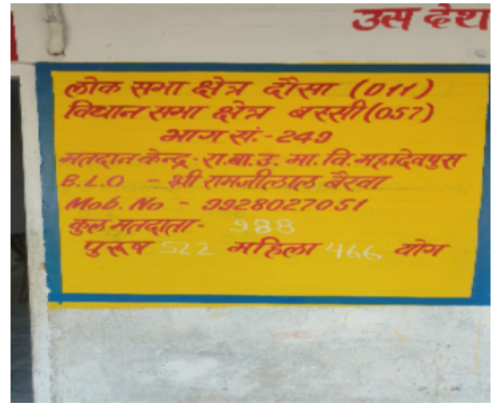 उस देश
लोक सभा क्षेत्र दौसा (011)
विधान सभा क्षेत्र बस्सी (057)
भाग सं.- 249
मतदान केन्द्र - रा.बा.उ. मा. वि. महादेवपुरा
B.L.O - श्री रामजीलाल बैरवा
Mob. No - 9928027051
कुल मतदाता - 988
पुरूष 522 महिला 466 योग